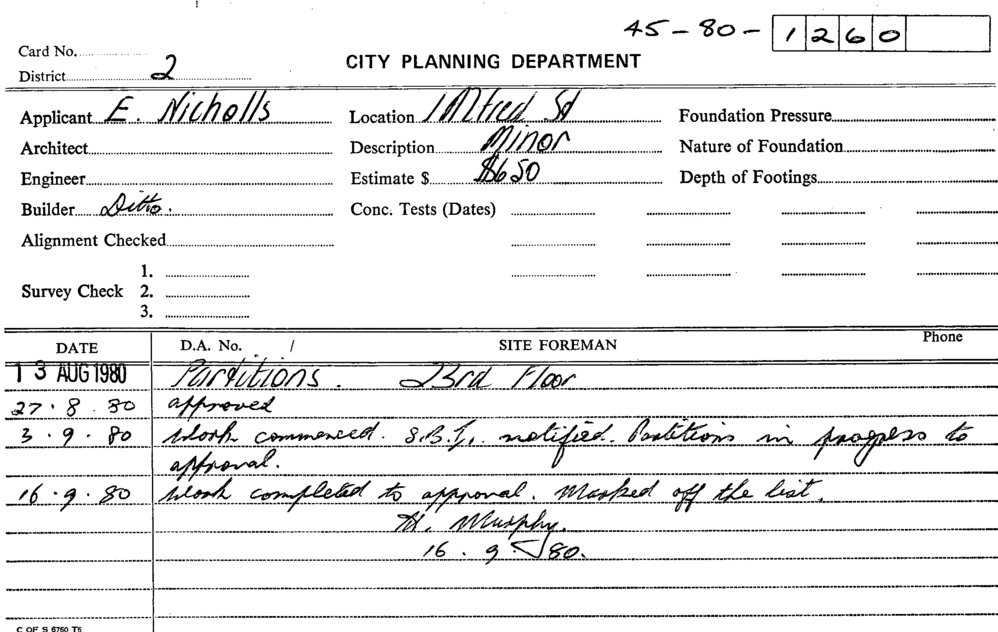 45-80- 1260
Card No.
CITY PLANNING DEPARTMENT
District 2
Applicant E. Nicholls Location 1 Alfred St Foundation Pressure
Architect Description Minor Nature of Foundation
Engineer Estimate $ $650 Depth of Footings
Builder Ditto. Conc. Tests (Dates)
Alignment Checked
Survey Check 1.
2.
3.
DATE D.A. No. / SITE FOREMAN Phone
13 AUG 1980 Partitions. 23rd Floor
27.8.80 approved
3.9.80 Work commenced. S.B.I. notified. Partitions in progress to
approval.
16.9.80 Work completed to approval. Marked off the list.
Murphy.
16.9.80.
C OF S 6760 T5